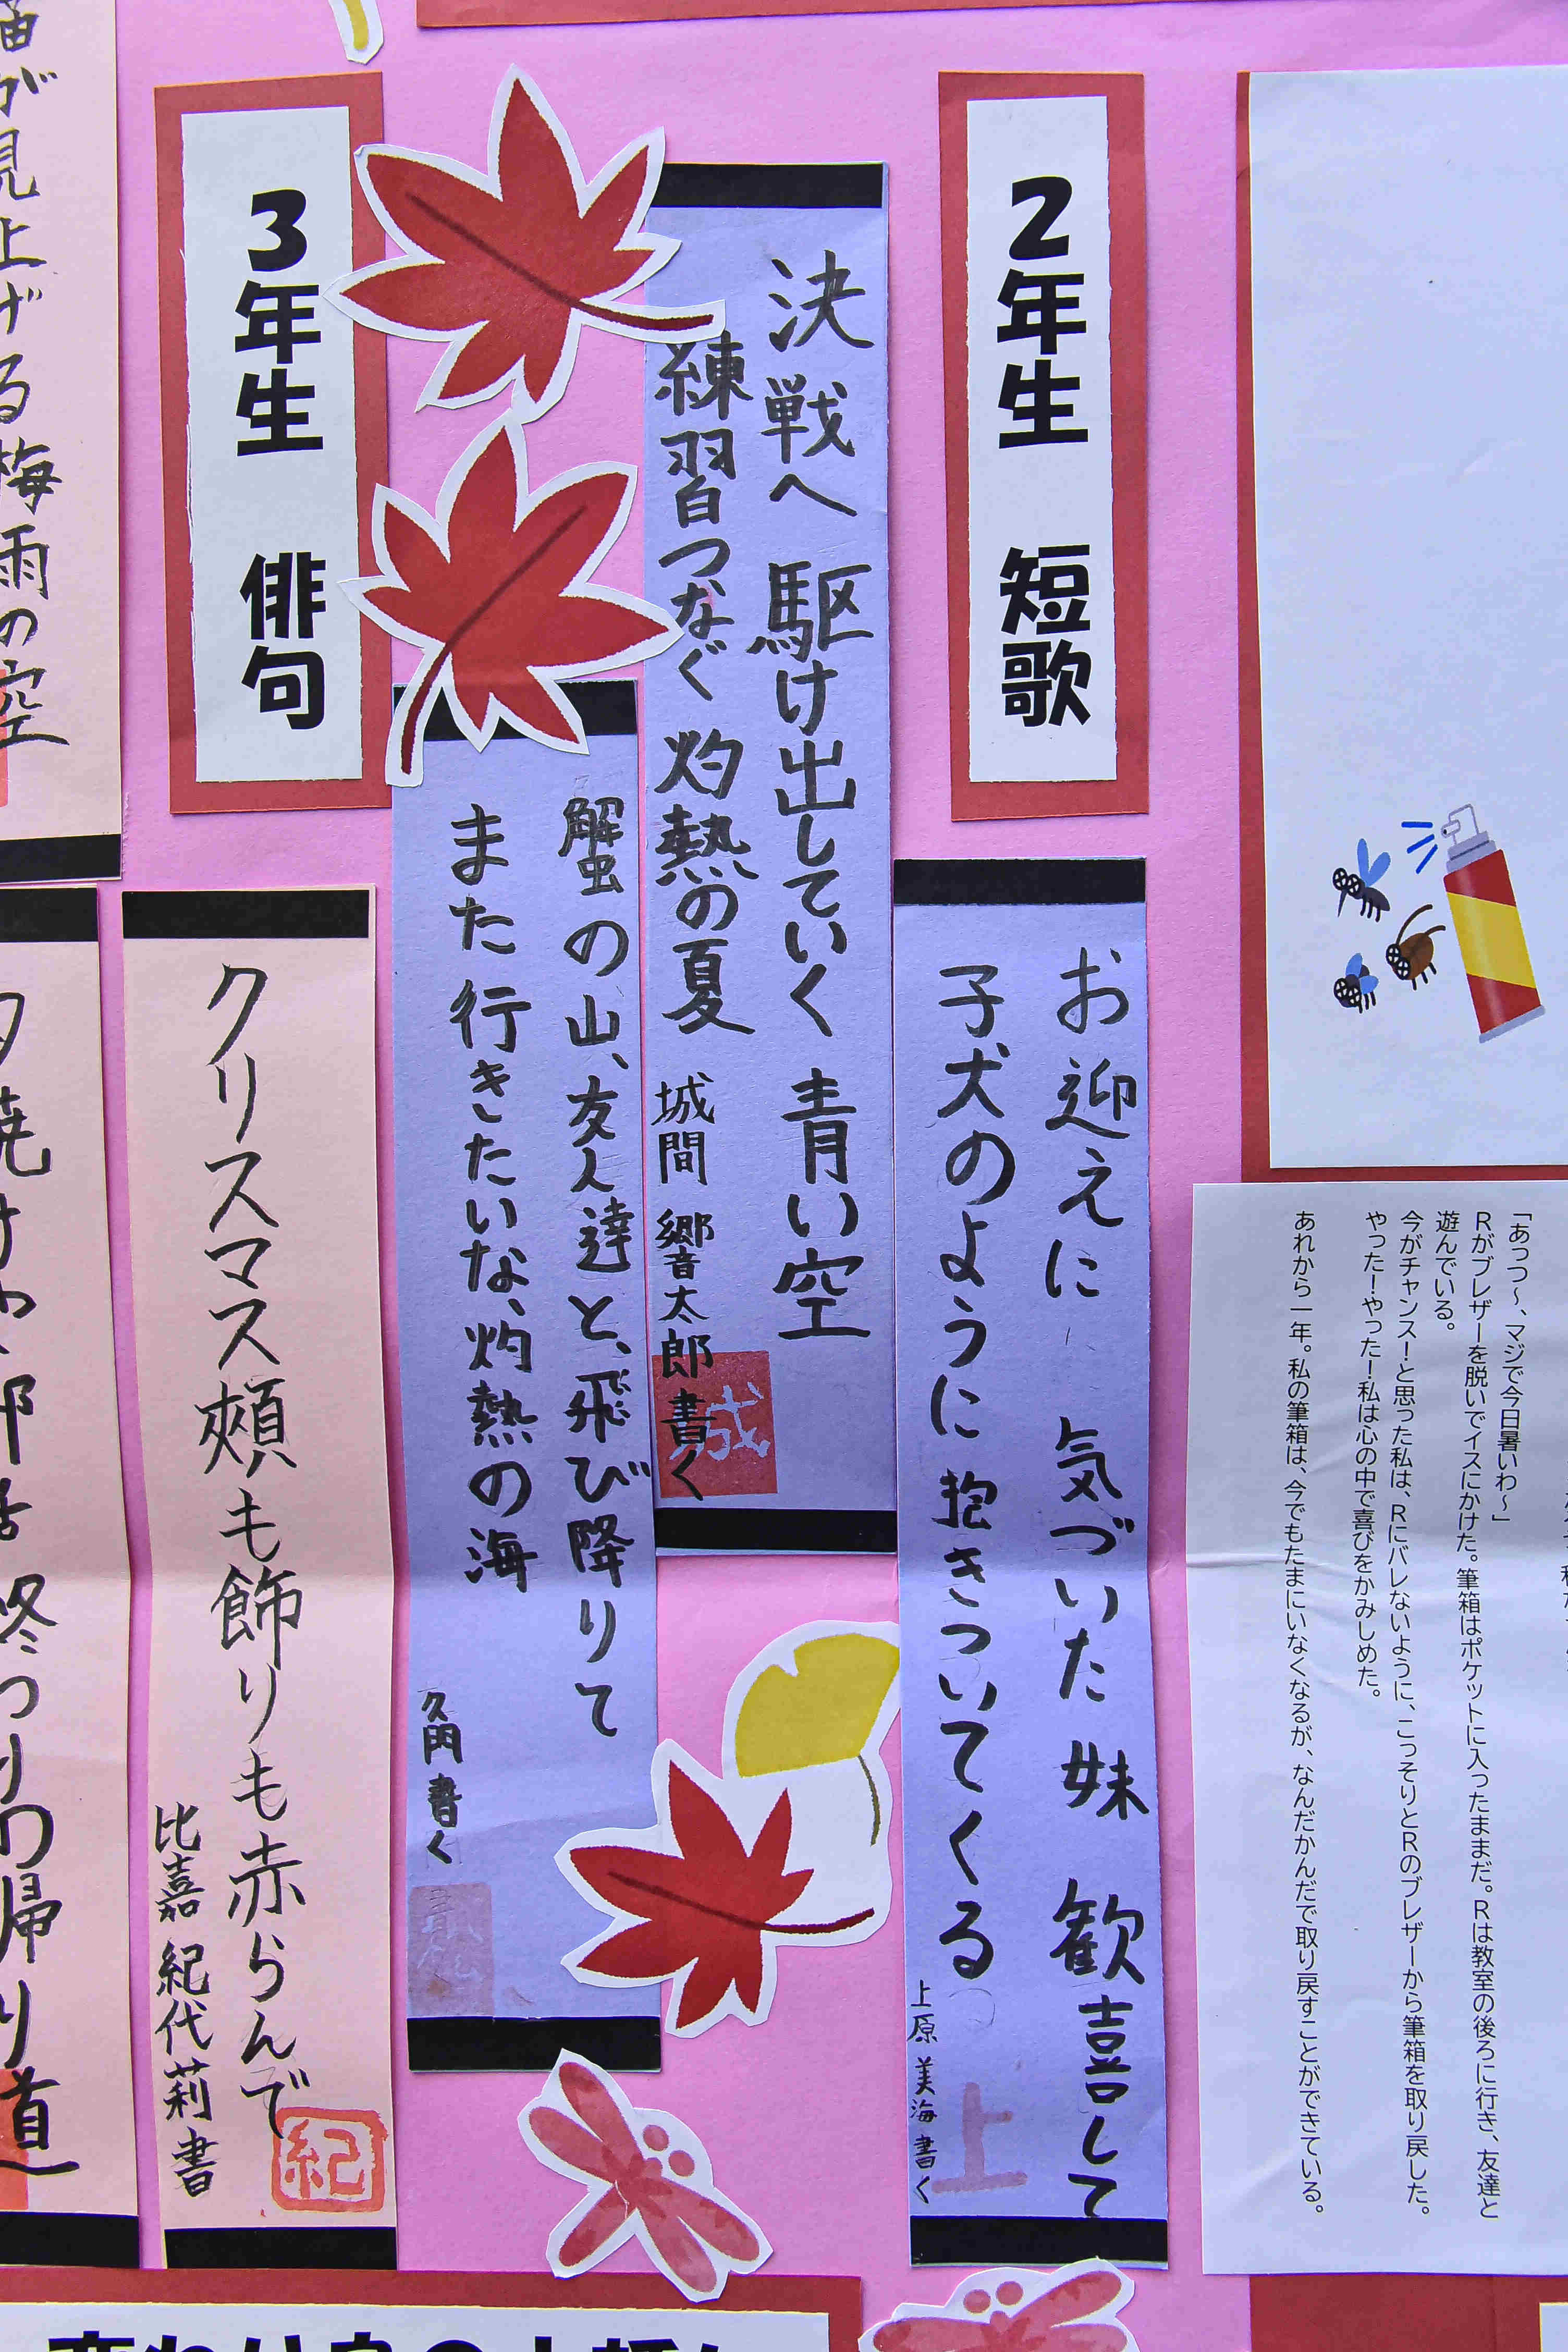 「あっつ～、マジで今日暑いわ～」
Rがブレザーを脱いでイスにかけた。筆箱はポケットに入ったままだ。Rは教室の後ろに行き、友達と
遊んでいる。
今がチャンス！と思った私は、Rにバレないように、こっそりとRのブレザーから筆箱を取り戻した。
やった！やった！私は心の中で喜びをかみしめた。
あれから一年。私の筆箱は、今でもたまにいなくなるが、なんだかんだで取り戻すことができている。
2年生　短歌
お迎えに　気づいた妹　歓喜して
子犬のように　抱きついてくる
上原 美海 書く
上
決戦へ　駆け出していく　青い空
練習つなぐ　灼熱の夏
城間 響太郎 書く
城
蟹の山、友人達と、飛び降りて
また行きたいな、灼熱の海
久門 書く
3年生　俳句
クリスマス頬も飾りも赤らんで
比嘉 紀代莉 書
紀
猫が見上げる梅雨の空
夕焼けや部活終わりの帰り道